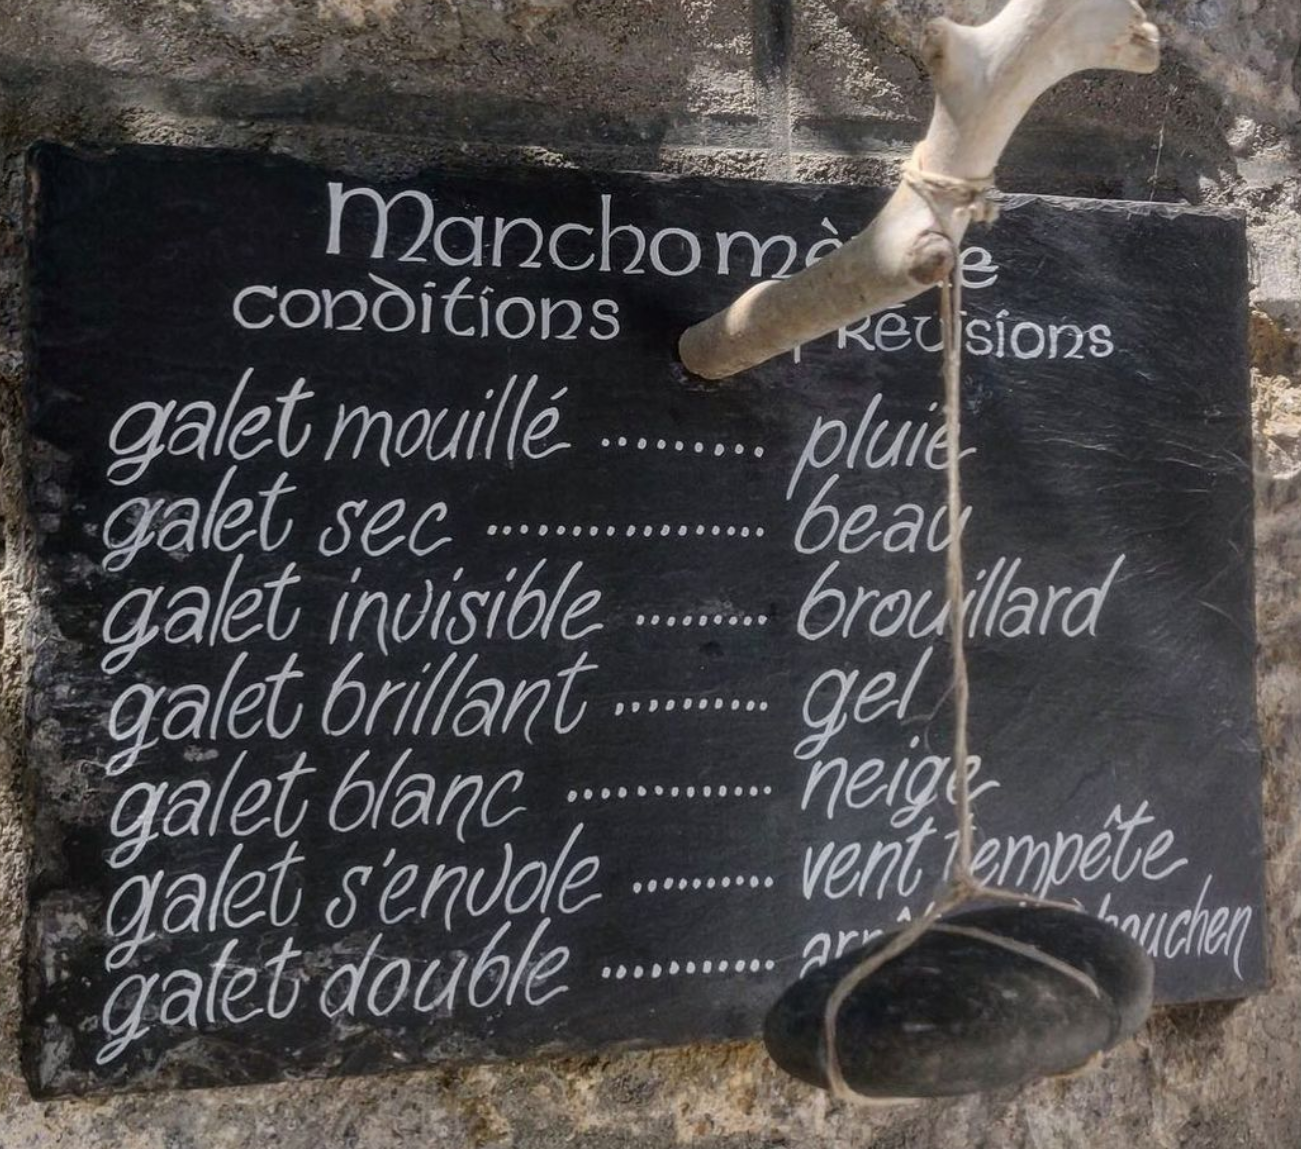 Manchomètre
conditions prévisions
galet mouillé .......... pluie
galet sec ................. beau
galet invisible .......... brouillard
galet brillant ........... gel
galet blanc ............. neige
galet s'envole .......... vent tempête
galet double ............ chouchen